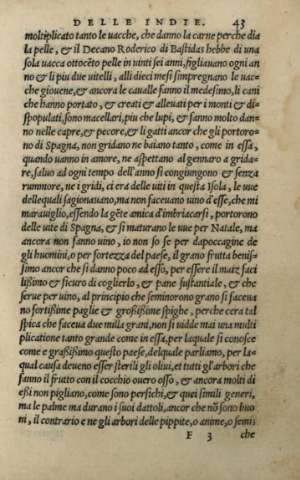 DELLE INDIE. 43
moltiplicato tanto le uacche, che danno la carne perche dia
la pelle, & il Decano Roderico di Bastidas hebbe di una
sola uacca ottocẽto pelle in uinti sei anni, figliauano ogni an
no & li piu due uitelli, alli dieci mesi simpregnano le uac-
che giouene, & ancora le caualle fanno il medesimo, li cani
che hanno portato, & creati & alleuati per i monti & di-
spopulati, sono macellari, piu che lupi, & fanno molto dan-
no nelle capre, & pecore, & li gatti ancor che gli portoro-
no di Spagna, non gridano ne baiano tanto, come in essa,
quando uanno in amore, ne aspettano al gennaro a grida-
re, saluo ad ogni tempo dell'anno si congiungono & senza
rumuore, ne i gridi, ci era delle uiti in questa Isola, & uue
delle quali sagionauano, ma non faceuano uino d'esse, che mi
marauiglio, essendo la gẽte amica d'imbriacarsi, portorono
delle uite di Spagna, & si maturano le uue per Natale, ma
ancora non fanno uino, io non so se per dapoccagine de
gli huomini, o per fortezza del paese, il grano frutta benis-
simo ancor che si danno poco ad esso, per essere il maiz faci
lissimo & sicuro di coglierlo, & pane sustantiale, & che
serue per uino, al principio che seminorono grano si faceua
no fortissime paglie & grossissime spighe, perche cera tal
spica che faceua due milla grani, non si uidde mai una multi
plicatione tanto grande come in essa, per laquale si conosce
come e grassissimo questo paese, delquale parliamo, per la-
qual causa deueno esser sterili gli oliui, et tutti gl'arbori che
fanno il frutto con il cocchio ouero osso, & ancora molti di
essi non pigliano, come sono persichi, & quei simili generi,
ma le palme ma durano i suoi dattoli, ancor che nõ sono buo
ni, il contrario e ne gli arbori delle pippite, o anime, o semi
F 3 che